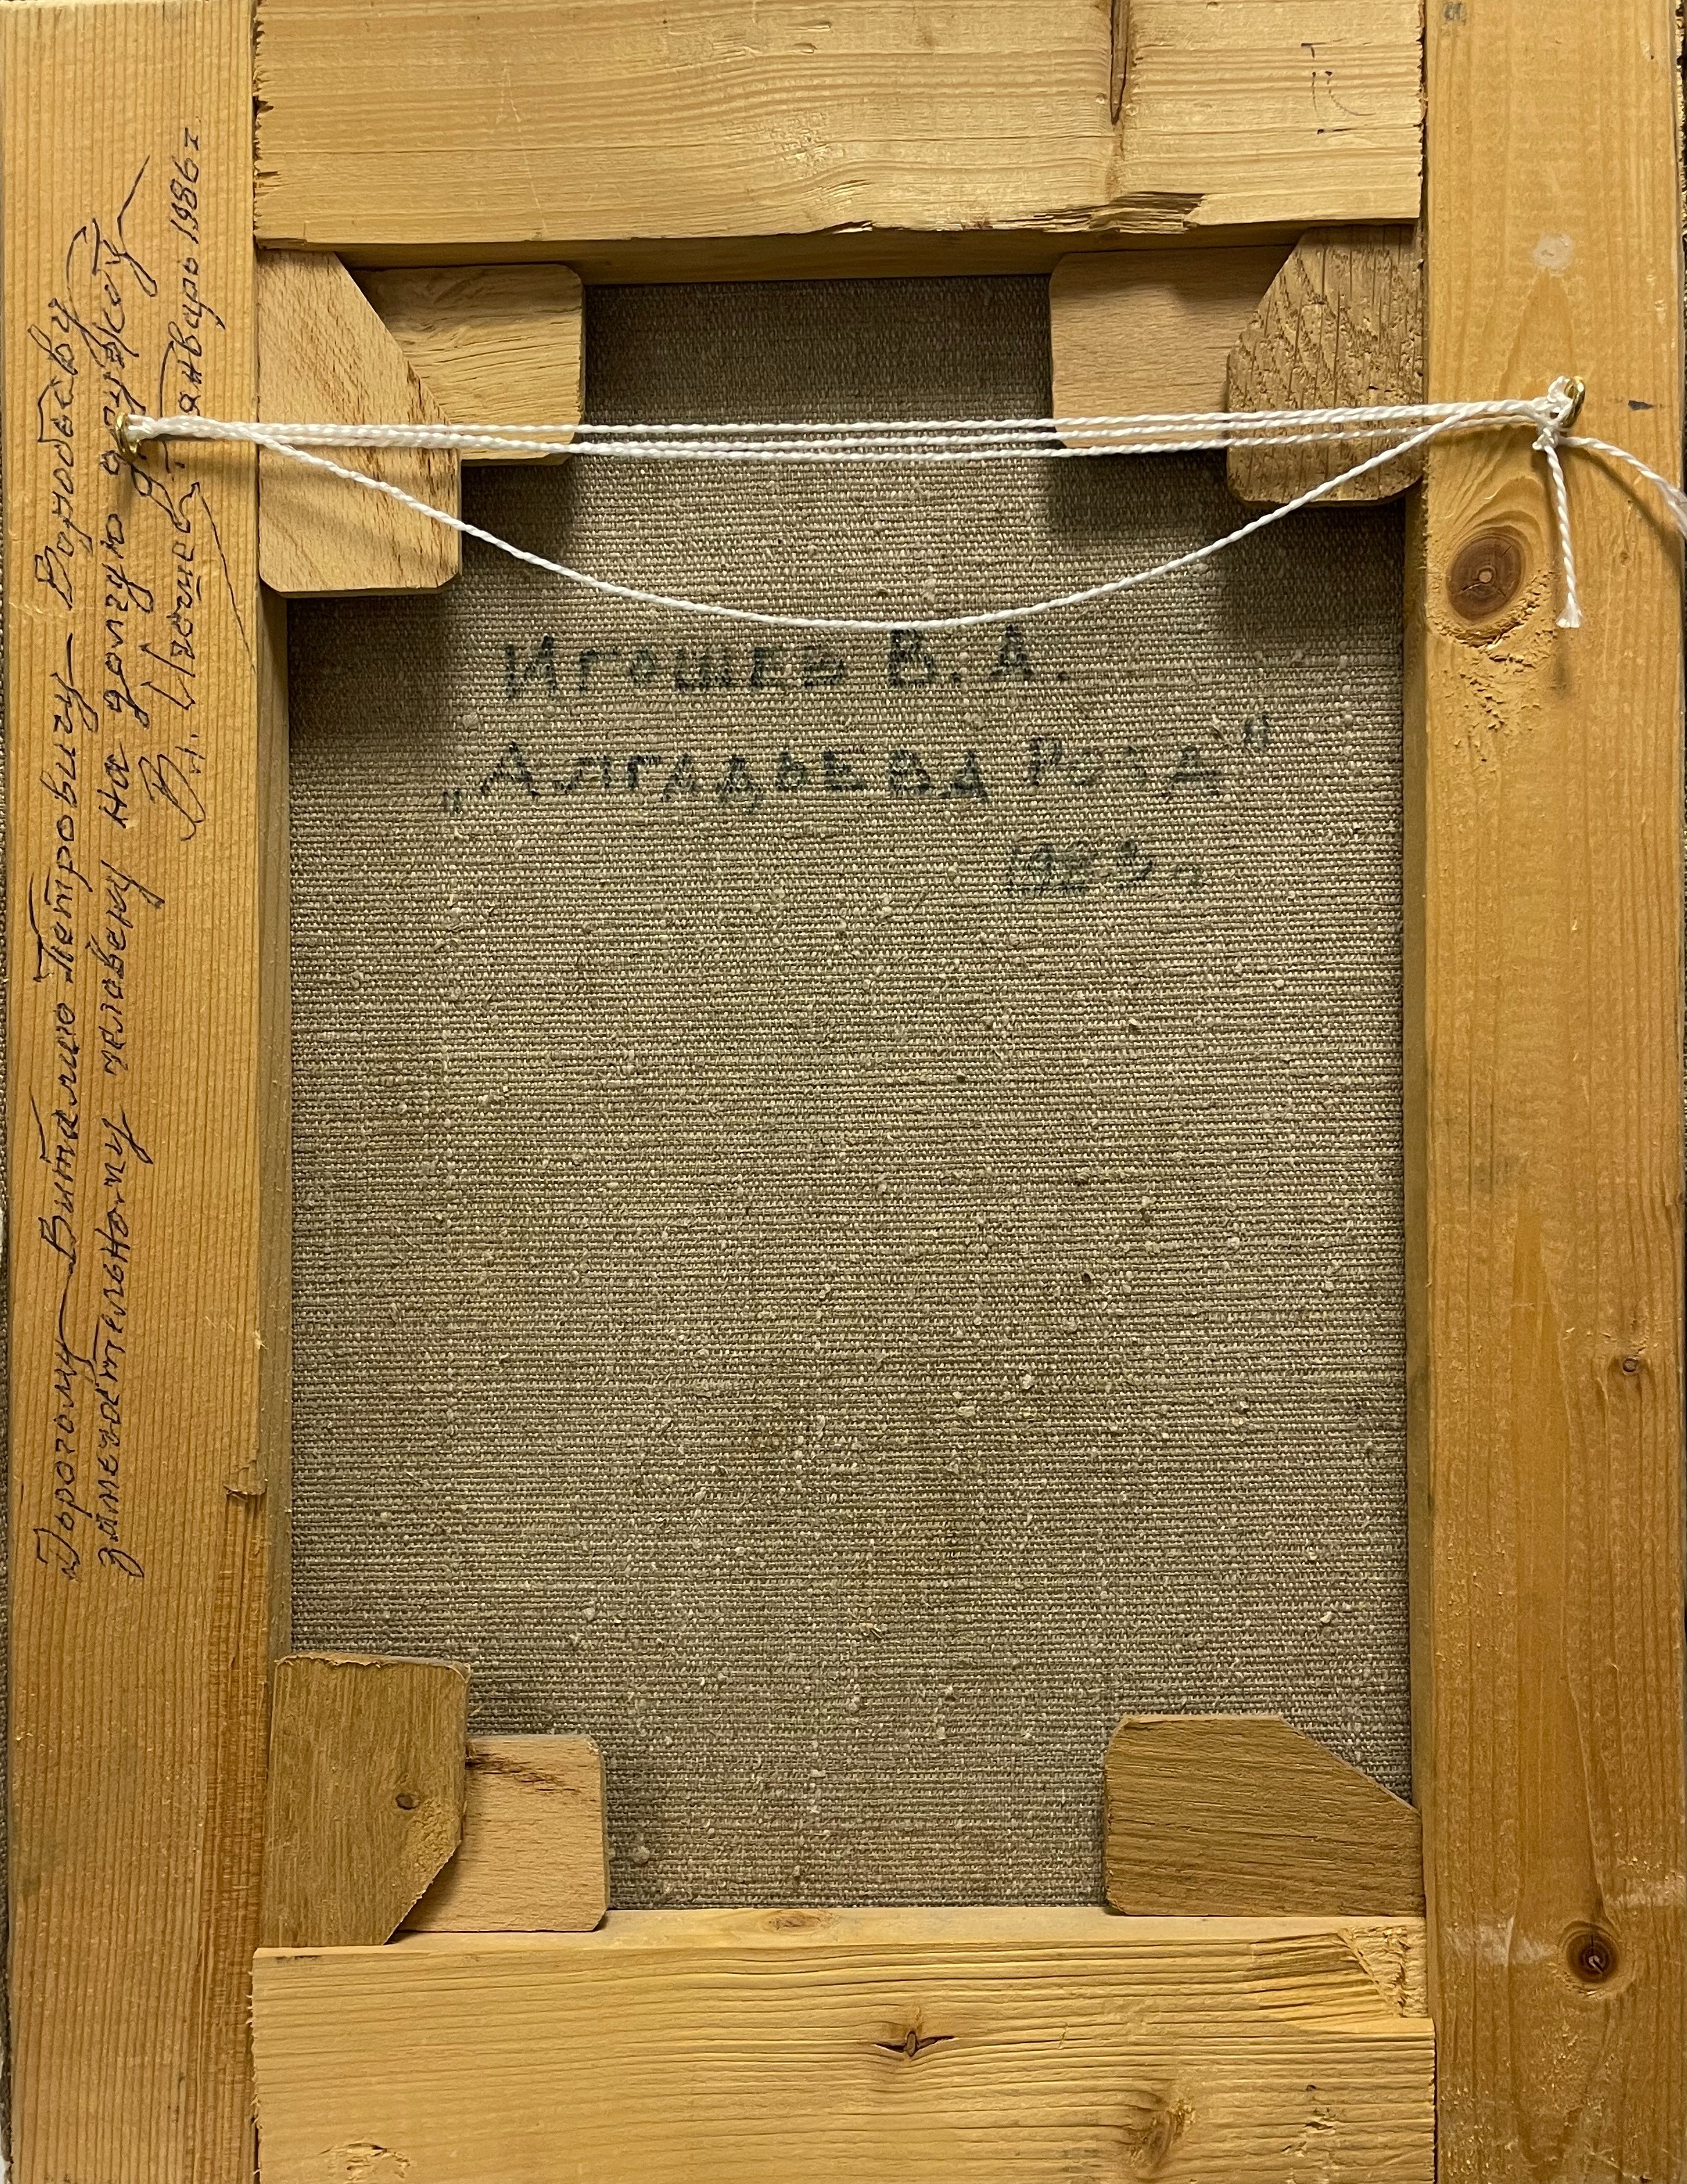 Игошев В. А.
„Алгадьева Роза"
Дорогому Виталию Петровичу Воробьеву
замечательному человеку на долгую дружбу
Вл. Игошев январь 1986 г